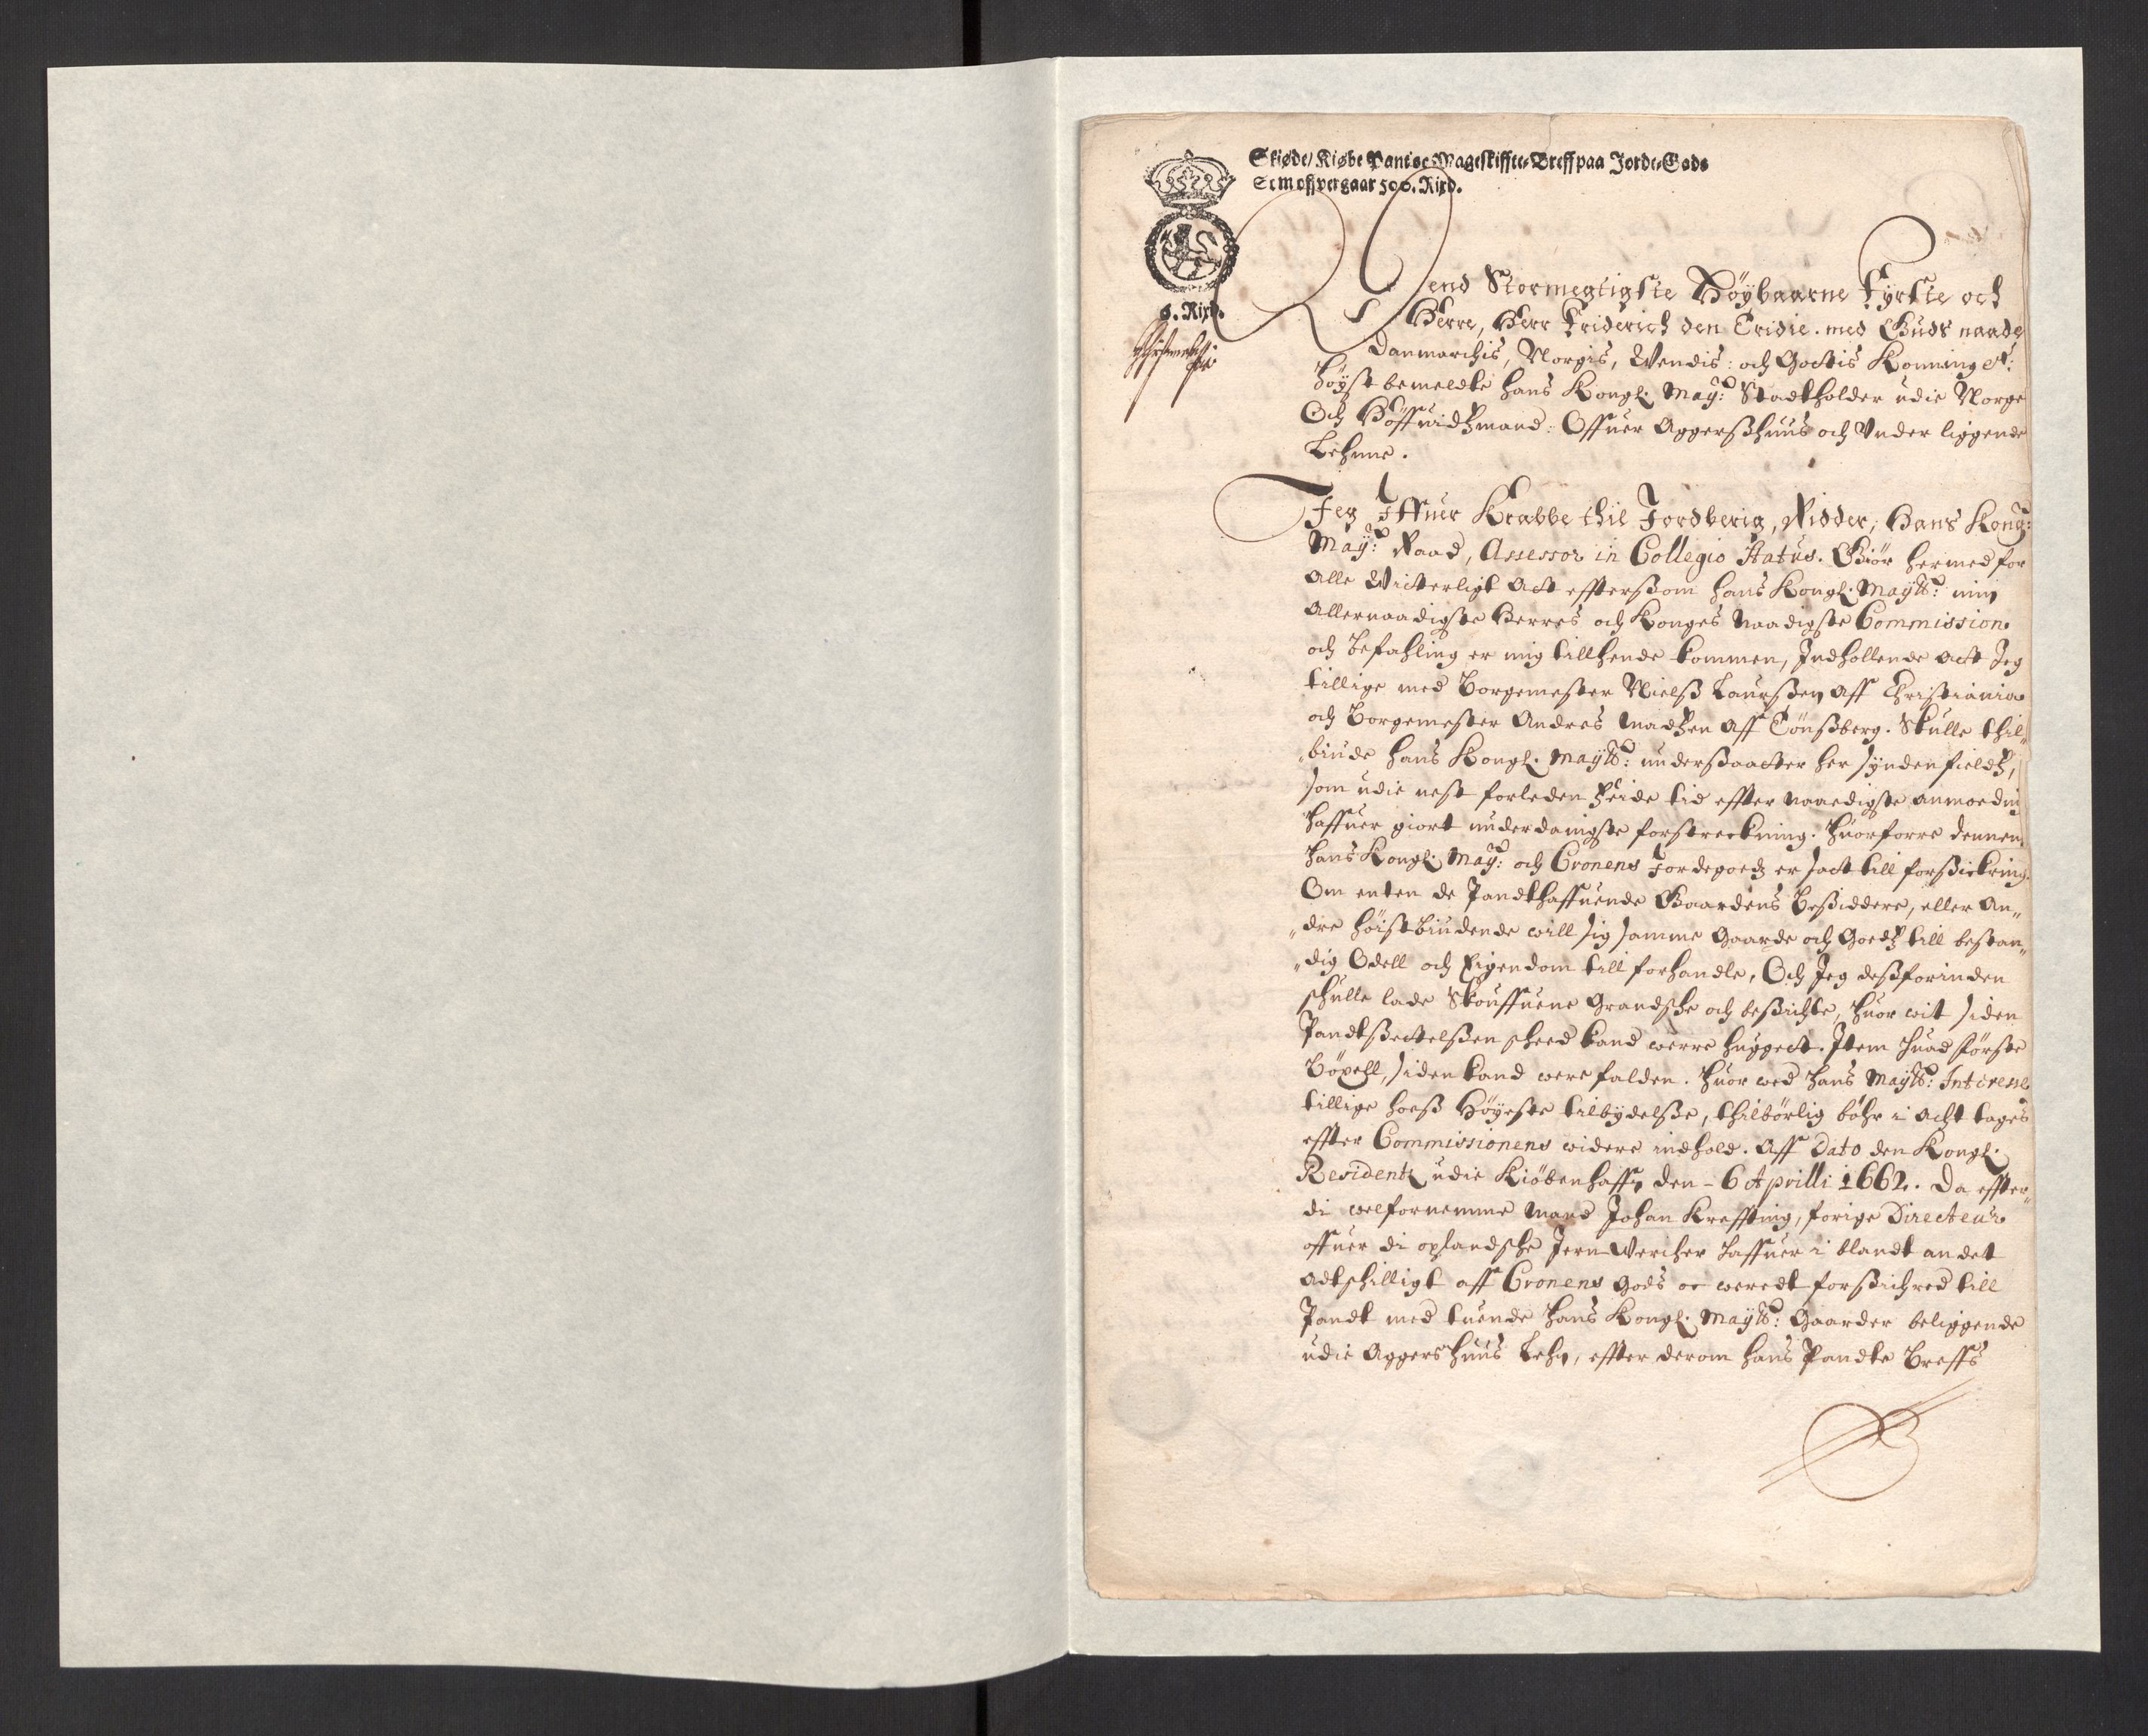 Skiøde/ Kiøbe Pante oc Mageskiffte-Breff paa Jorde-Gods
Som offvergaar 500. Rixd.
6. Rixd.
Dend Stormegtigste Höybaarne Fyrste och
Herre, Herr Friderich den Tridie. med Guds naade
Danmarchis, Norgis, Wendis: och Gottis Konning etc:
höyst bemeldte hans Kongl. May:tz Stadtholder udie Norge
Och Höffuidtzmand: Offuer Aggerßhuus och Under liggende
Lehnne.
Jeg Iffuer Krabbe thil Jordberig, Ridder, Hans Kong:
May:tz Raad, Assessor in Collegio Status. Giör hermed for
Alle Witterligt Att effterßom hans Kongl. Mayts: min
Allernaadigste Herres och Konges Naadigste Commission
och befahling er mig tillhende kommen, Indhollende att Jeg
tillige med Borgemester Nielß Laurßen Aff Christiania
och Borgemester Andres Madtzen Aff Tönßberg. Skulle thil„
„biude hans Kongl. Mayts: underßaatter her syndenfieldtz,
som udie nest forleden feide tid effter naaedigste anmoeding
haffuer giort underdanigste forstreckning. huorforre dennem
hans Kongl: May: och Cronens Jordegoedz er satt till forßickring.
Om enten de Pandthaffuende Gaardens Beßiddere, eller An„
„dre höistbiudende will sig samme Gaarde och Goedtz till bestan„
„dig Odell och Eigendom till forhandle, Och Jeg deßforinden
schulle lade Skouffuene Grandsche och beßichte, huor wit siden
Pandtßettelßen scheed kand werre huggett. Item huad förste
Böxell, siden kand were falden. huor wed hans Mayts: Interesse
tillige hoeß Höyeste tilbydelße, thilbörlig böhr i acht tages
effter Commissionens widere indhold. Aff Dato den Kongl.
Residentz udie Kiöbenhaffn den - 6 Aprilli 1662. Da effter„
di welfornemme Mand Johan Kreffting, forige Directeur
offuer di oplandsche Jern Wercher haffuer i blandt andet
adtschilligt aff Cronens gods oc weredt forßichred till
Pandt med tuende hans Kongl. Mayts: Gaarder beliggende
udie Aggershuus Lehn, effter derom hans Pandte Breffs